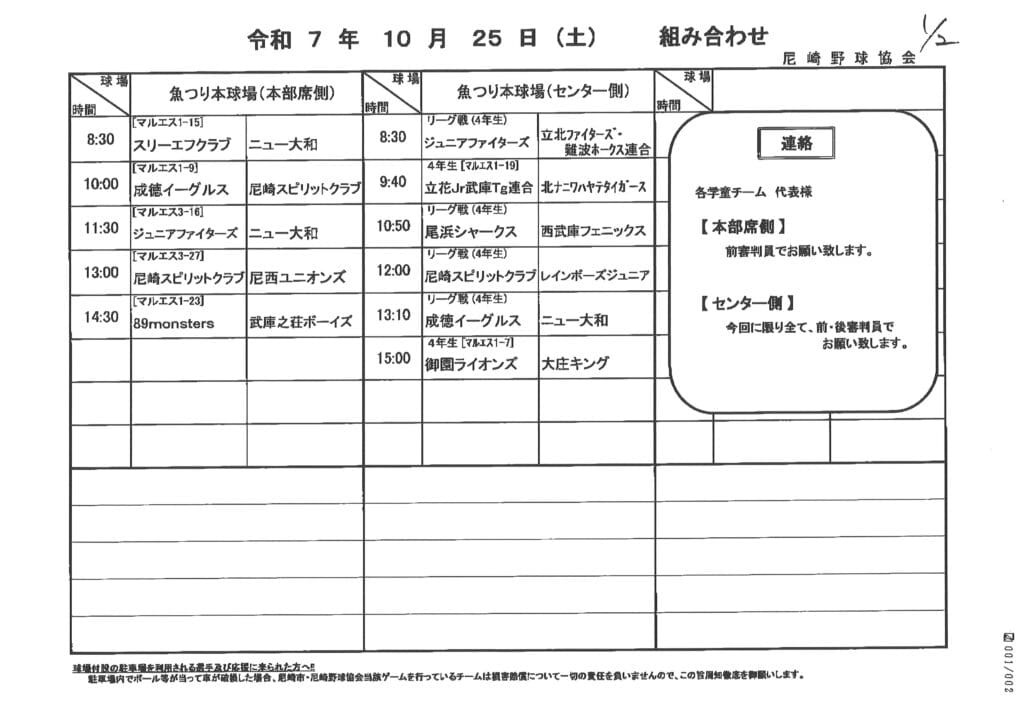 令和 7 年 10 月 25 日(土) 組み合わせ
1/2
尼崎野球協会
球場
時間
魚つり本球場(本部席側)
球場
時間
魚つり本球場(センター側)
球場
時間
8:30
[マルエス1-15]
スリーエフクラブ
ニュー大和
8:30
リーグ戦(4年生)
ジュニアファイターズ
立北ファイターズ・
難波ホークス連合
10:00
[マルエス1-9]
成徳イーグルス
尼崎スピリットクラブ
9:40
4年生 [マルエス1-19]
立花Jr武庫Tg連合
北ナニワハヤテタイガース
11:30
[マルエス3-16]
ジュニアファイターズ
ニュー大和
10:50
リーグ戦(4年生)
尾浜シャークス
西武庫フェニックス
13:00
[マルエス3-27]
尼崎スピリットクラブ
尼西ユニオンズ
12:00
リーグ戦(4年生)
尼崎スピリットクラブ
レインボーズジュニア
14:30
[マルエス1-23]
89monsters
武庫之荘ボーイズ
13:10
リーグ戦(4年生)
成徳イーグルス
ニュー大和
15:00
4年生 [マルエス1-7]
御園ライオンズ
大庄キング
連絡
各学童チーム 代表様
【本部席側】
前審判員でお願い致します。
【センター側】
今回に限り全て、前・後審判員で
お願い致します。
球場付設の駐車場を利用される選手及び応援に来られた方へ!!
駐車場内でボール等が当って車が破損した場合、尼崎市・尼崎野球協会当該ゲームを行っているチームは損害賠償について一切の責任を負いませんので、この旨周知徹底を御願いします。
001/002